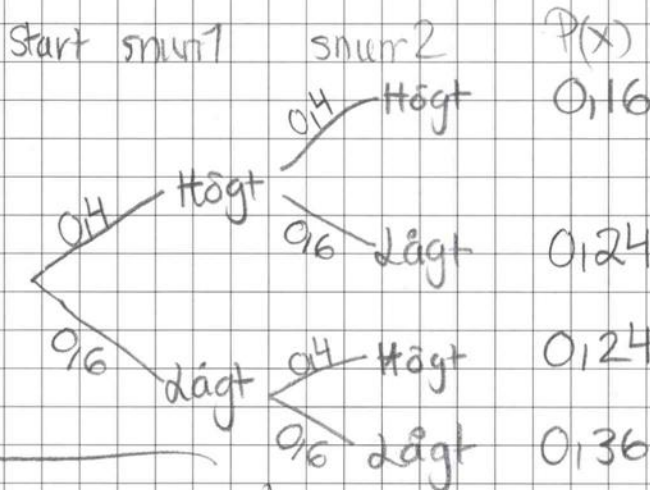 Start snurr1 snurr2 P(x)
0,4 Högt 0,16
Högt
0,4
0,6 Lågt 0,24
0,6 0,4 Högt 0,24
Lågt
0,6 Lågt 0,36